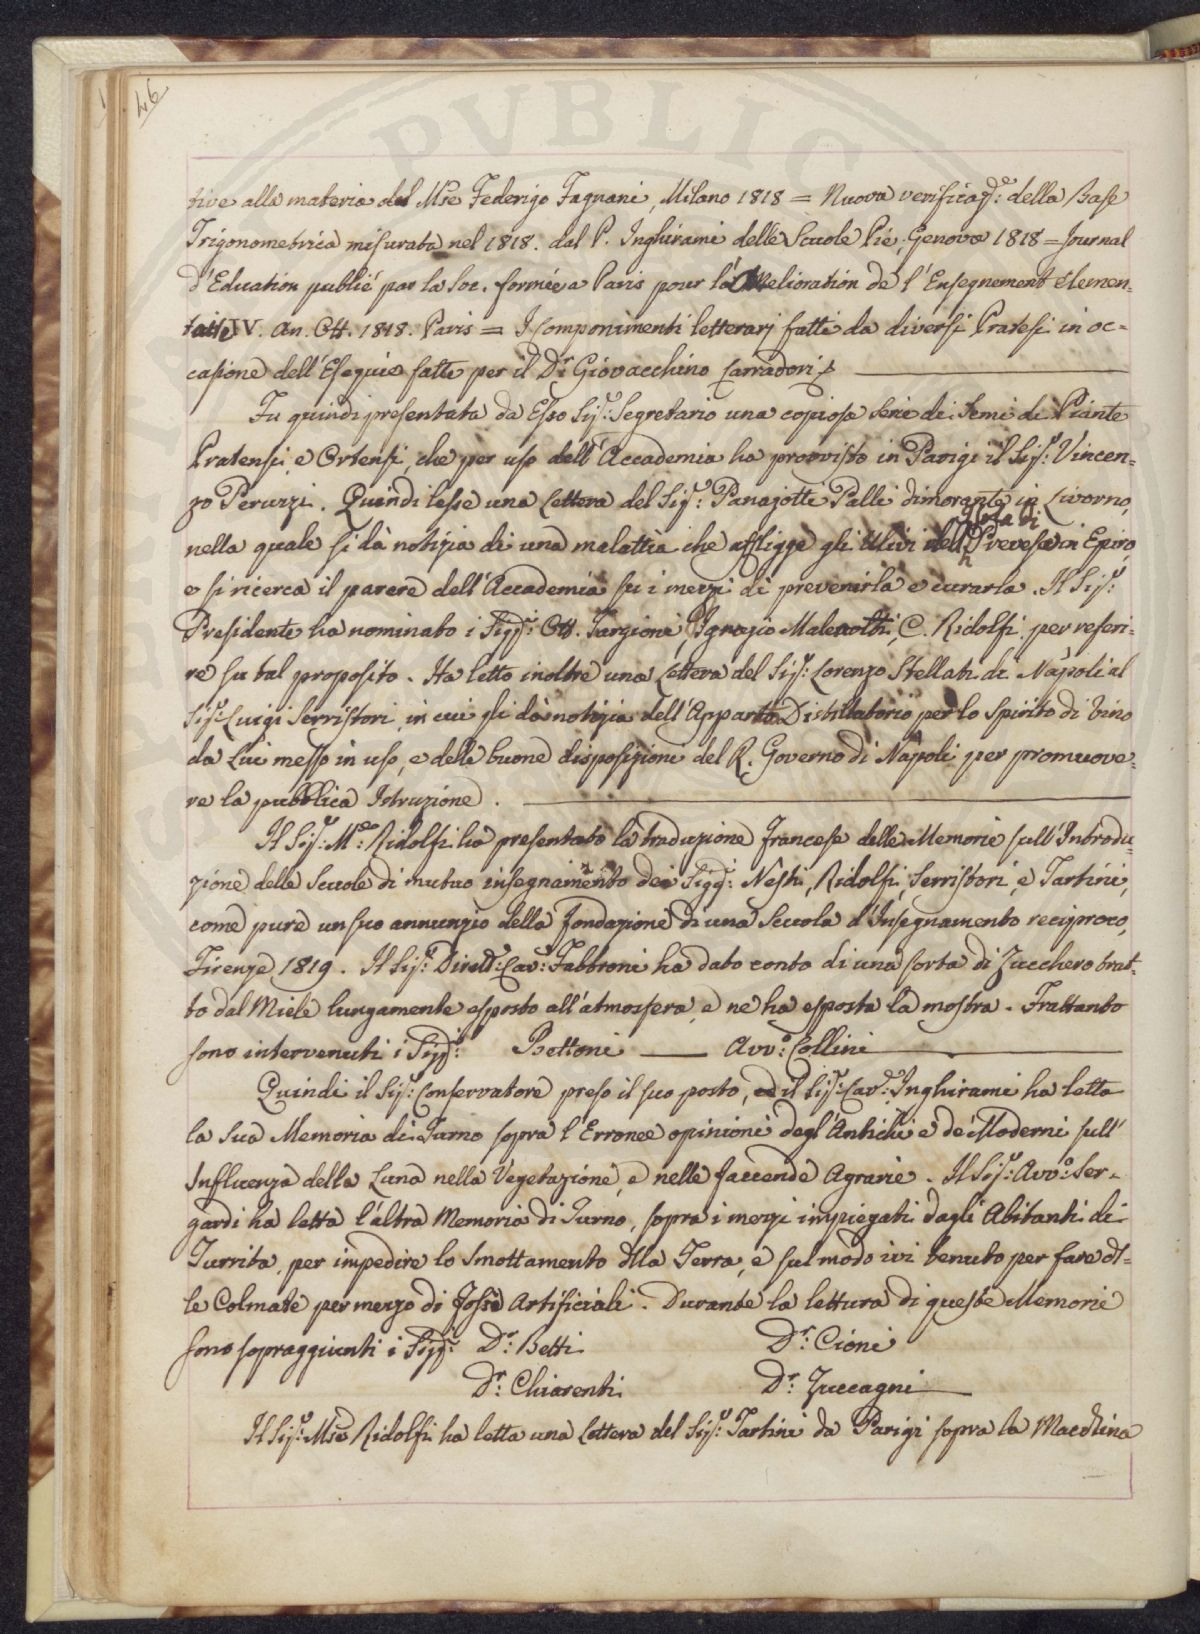 46
tive alla materia del Mse Federigo Fagnani, Milano 1818 = Nuova verificaz.e della Base
Trigonometrica misurata nel 1818. dal P. Inghirami delle Scuole Pie, Genova 1818 = Journal
d'Education publié par la Soc. formée a Paris pour l'Amelioration de l'Ensegnement elemen-
taire IV. An. Ott. 1818. Paris = I componimenti letterarj fatti da diversi Pratesi in oc=
casione dell'Esequie fatte per il Dr. Giovacchino Carradori
Fu quindi presentata da Esso Sigr. Segretario una copiosa serie di Semi di Piante
Pratensi, e Ortensi, che per uso dell'Accademia ha provvisto in Parigi il Sigr. Vincen=
zo Peruzzi. Quindi lesse una Lettera del Sigr. Panajotti Palli dimorante in Livorno,
nella quale si dà notizia di una malattia che affligge gli Ulivi nell'Isola di Prevesa in Epiro,
e si ricerca il parere dell'Accademia su i mezzi di prevenirla e curarla. Il Sigr.
Presidente ha nominato i Sigri. Ott. Targioni, Ignazio Malenotti, C. Ridolfi per referi=
re su tal proposito. Ha letto inoltre una Lettera del Sigr. Lorenzo Stellati di Napoli al
Sigr. Luigi Serristori, in cui gli dà notizia dell'Apparto Distillatorio per lo Spirito di Vino
da Lui messo in uso, e delle buone disposizioni del R. Governo di Napoli per promuove=
re la pubblica Istruzione.
Il Sigr. Me. Ridolfi ha presentato la traduzione Francese delle Memorie sull'Introdu=
zione delle Scuole di mutuo insegnamento dei Sigri. Nesti, Ridolfi, Serristori, e Tartini,
come pure un suo annunzio della fondazione di una Scuola d'Insegnamento reciproco,
Firenze 1819. Il Sigr. Dirett.e Cav.e Fabbroni ha dato conto di una sorta di Zucchero trat=
to dal Miele lungamente esposto all'atmosfera, e ne ha esposta la mostra. Frattanto
sono intervenuti i Sigri. Bettoni — Avv.o Collini
Quindi il Sigr. Conservatore preso il suo posto, ed il Sigr. Cav.e Inghirami ha letta
la sua Memoria di Turno sopra l'Erronee opinioni degl'Antichi e dei Moderni sull'
Influenza della Luna nella Vegetazione, e nelle faccende Agrarie. Il Sigr. Avv.o Ser-
gardi ha letta l'altra Memoria di Turno, sopra i mezzi impiegati dagli Abitanti di
Turrita, per impedire lo Smottamento dlla Terra, e sul modo ivi tenuto per fare dl=
le Colmate per mezzo di Fossi Artificiali. Durante la lettura di queste Memorie
sono sopraggiunti i Sigri. Dr. Betti Dr. Cioni
Dr. Chiarenti Dr. Zuccagni
Il Sigr. Mse Ridolfi ha letta una Lettera del Sigr. Tartini da Parigi sopra la Macchina